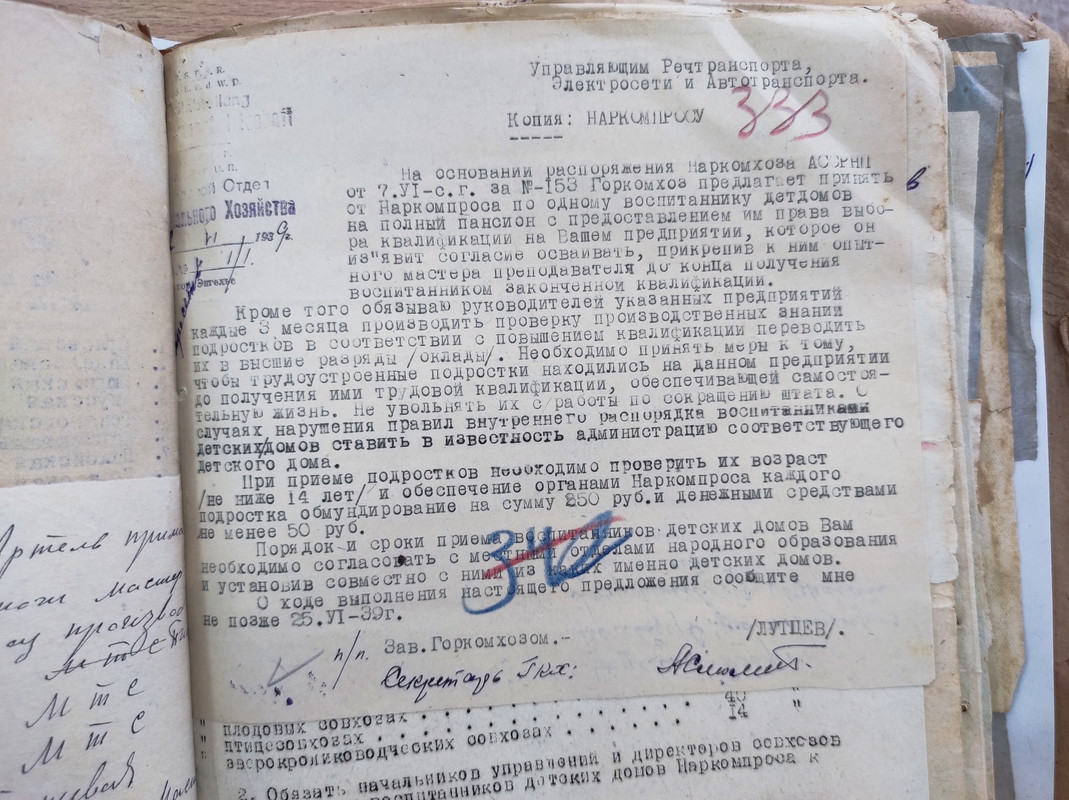 Управляющим Речтранспорта,
Электросети и Автотранспорта.
333
Копия: НАРКОМПРОСУ
Отдел
Хозяйства
193 9г.
Энгельс
На основании распоряжения Наркомхоза АССРНП
от 7.VI-с.г. за №-153 Горкомхоз предлагает принять в
от Наркомпроса по одному воспитаннику детдомов
на полный пансион с предоставлением им права выбо-
ра квалификации на Вашем предприятии, которое он
из"явит согласие осваивать, прикрепив к ним опыт-
ного мастера преподавателя до конца получения
воспитанником законченной квалификации.
Кроме того обязываю руководителей указанных предприятий
каждые 3 месяца производить проверку производственных знаний
подростков в соответствии с повышением квалификации переводить
их в высшие разряды /оклады/. Необходимо принять меры к тому,
чтобы трудоустроенные подростки находились на данном предприятии
до получения ими трудовой квалификации, обеспечивающей самостоя-
тельную жизнь. Не увольнять их с работы по сокращению штата. О
случаях нарушения правил внутреннего распорядка воспитанниками
детских домов ставить в известность администрацию соответствующего
детского дома.
При приеме подростков необходимо проверить их возраст
/не ниже 14 лет/ и обеспечение органами Наркомпроса каждого
подростка обмундирование на сумму 250 руб.и денежными средствами
не менее 50 руб.
Порядок и сроки приема воспитанников детских домов Вам
необходимо согласовать с местными отделами народного образования
и установив совместно с ними из каких именно детских домов.
О ходе выполнения настоящего предложения сообщите мне
не позже 25.VI-39г.
п/п. Зав.Горкомхозом.- /ЛУТЦЕВ/.
Секретарь Гкх:
" плодовых совхозах . . . . . . 40 "
" птицесовхозах . . . . . . 14 "
" зверокролиководческих совхозах . . . .
2. Обязать начальников управлений и директоров совхозов
воспитанников детских домов Наркомпроса к
Артель
МТС
МТС